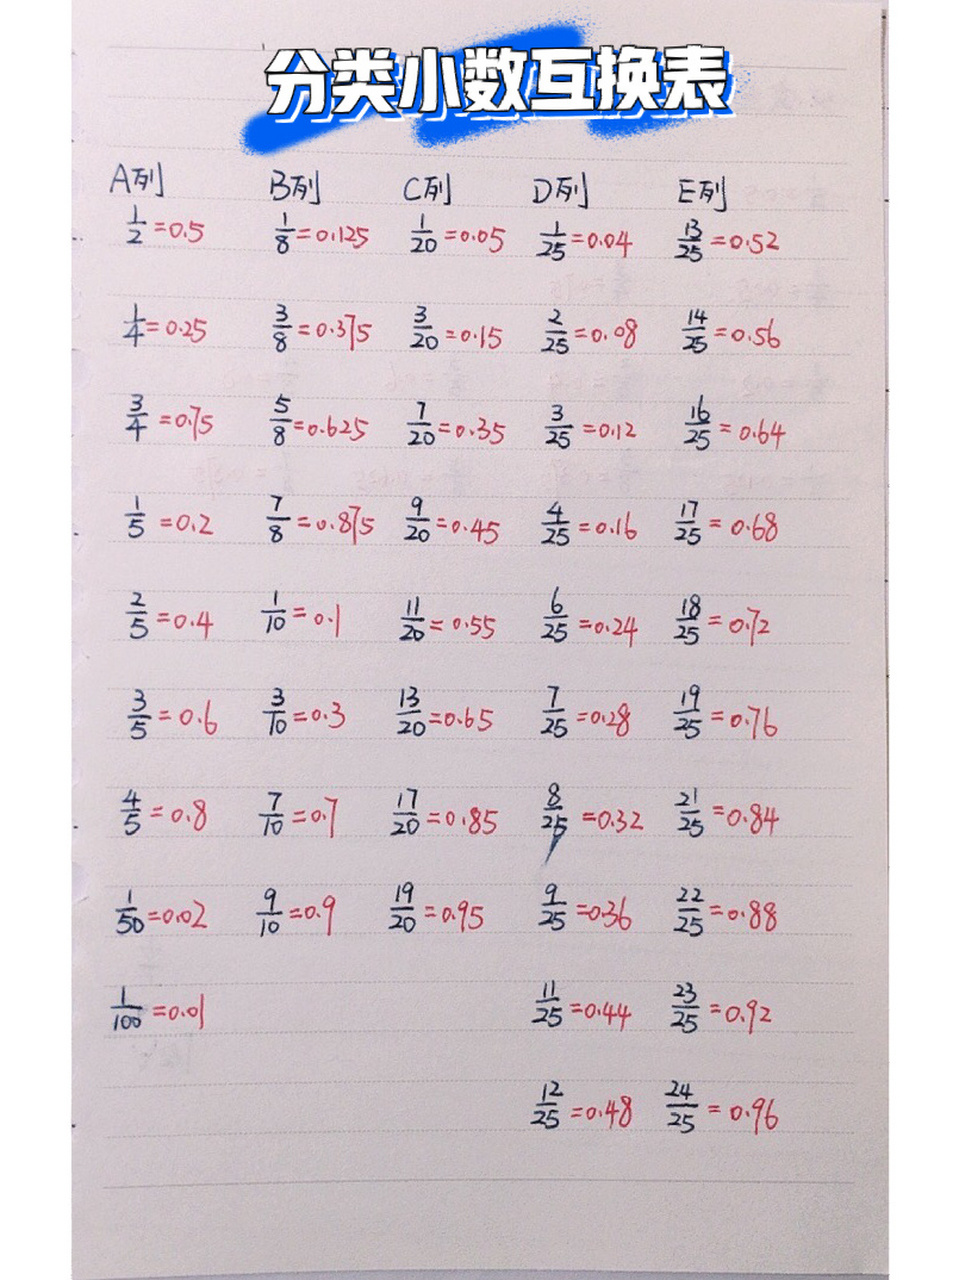 分类小数互换表
A列 B列 C列 D列 E列
1/2=0.5 1/8=0.125 1/20=0.05 1/25=0.04 13/25=0.52
1/4=0.25 3/8=0.375 3/20=0.15 2/25=0.08 14/25=0.56
3/4=0.75 5/8=0.625 7/20=0.35 3/25=0.12 16/25=0.64
1/5=0.2 7/8=0.875 9/20=0.45 4/25=0.16 17/25=0.68
2/5=0.4 1/10=0.1 11/20=0.55 6/25=0.24 18/25=0.72
3/5=0.6 3/10=0.3 13/20=0.65 7/25=0.28 19/25=0.76
4/5=0.8 7/10=0.7 17/20=0.85 8/25=0.32 21/25=0.84
1/50=0.02 9/10=0.9 19/20=0.95 9/25=0.36 22/25=0.88
1/100=0.01 11/25=0.44 23/25=0.92
12/25=0.48 24/25=0.96